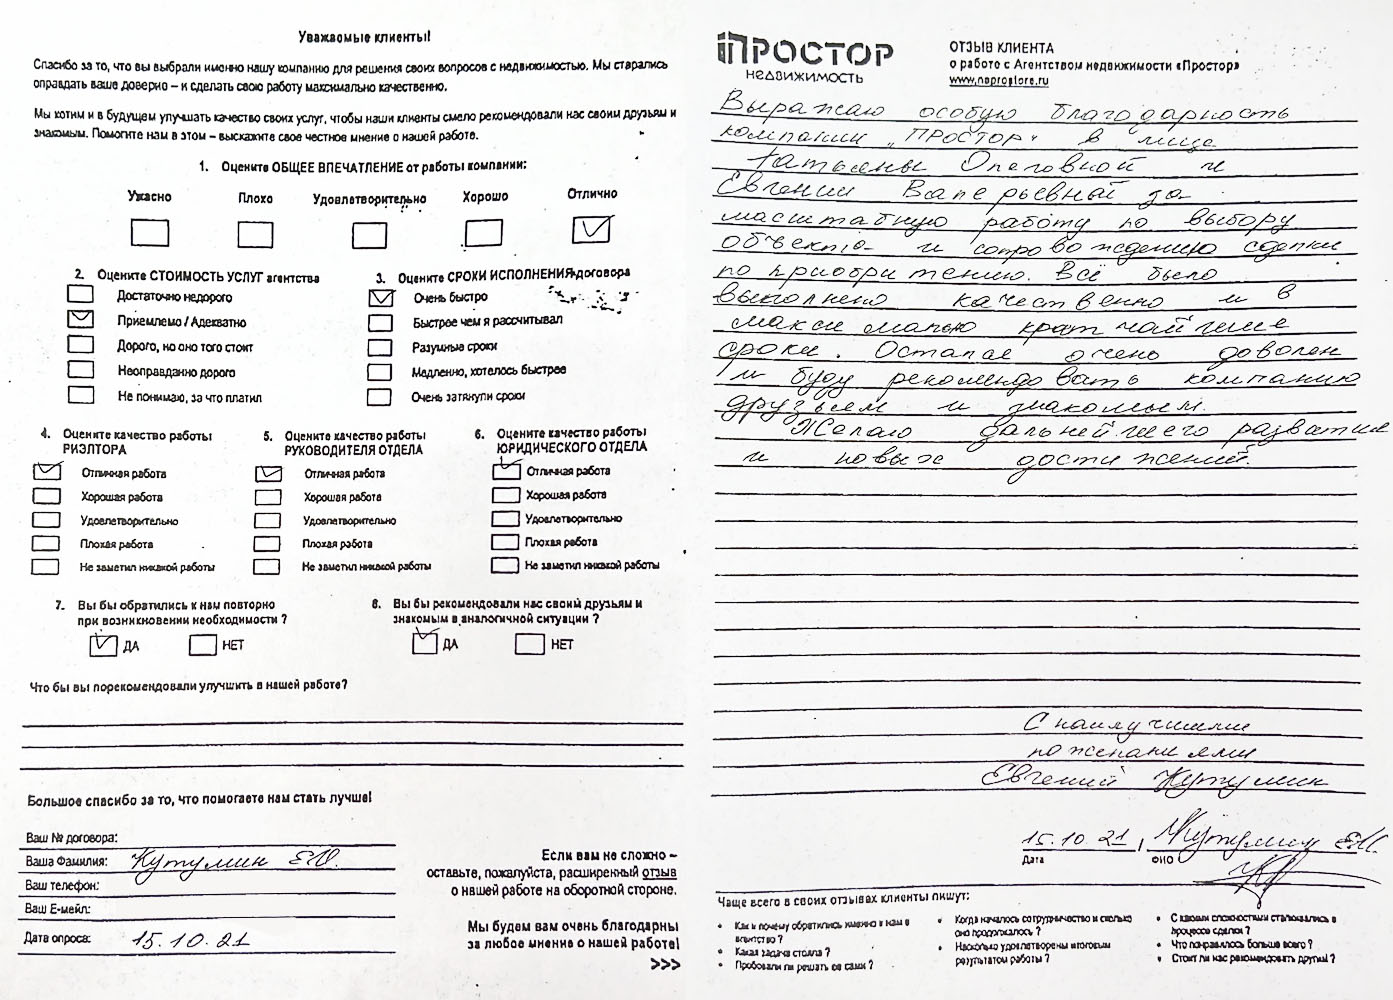 Уважаемые клиенты!
Спасибо за то, что вы выбрали именно нашу компанию для решения своих вопросов с недвижимостью. Мы старались
оправдать ваше доверие – и сделать свою работу максимально качественно.
Мы хотим и в будущем улучшать качество своих услуг, чтобы наши клиенты смело рекомендовали нас своим друзьям и
знакомым. Помогите нам в этом – выскажите свое честное мнение о нашей работе.
1. Оцените ОБЩЕЕ ВПЕЧАТЛЕНИЕ от работы компании:
Ужасно Плохо Удовлетворительно Хорошо Отлично
2. Оцените СТОИМОСТЬ УСЛУГ агентства
Достаточно недорого
Приемлемо / Адекватно
Дорого, но оно того стоит
Неоправданно дорого
Не понимаю, за что платил
3. Оцените СРОКИ ИСПОЛНЕНИЯ договора
Очень быстро
Быстрее чем я рассчитывал
Разумные сроки
Медленно, хотелось быстрее
Очень затянули сроки
4. Оцените качество работы
РИЭЛТОРА
Отличная работа
Хорошая работа
Удовлетворительно
Плохая работа
Не заметил никакой работы
5. Оцените качество работы
РУКОВОДИТЕЛЯ ОТДЕЛА
Отличная работа
Хорошая работа
Удовлетворительно
Плохая работа
Не заметил никакой работы
6. Оцените качество работы
ЮРИДИЧЕСКОГО ОТДЕЛА
Отличная работа
Хорошая работа
Удовлетворительно
Плохая работа
Не заметил никакой работы
7. Вы бы обратились к нам повторно
при возникновении необходимости ?
ДА НЕТ
8. Вы бы рекомендовали нас своим друзьям и
знакомым в аналогичной ситуации ?
ДА НЕТ
Что бы вы порекомендовали улучшить в нашей работе?
Большое спасибо за то, что помогаете нам стать лучше!
Ваш № договора:
Ваша Фамилия: Кутумин Е.Ю.
Ваш телефон:
Ваш Е-мейл:
Дата опроса: 15.10.21
Если вам не сложно –
оставьте, пожалуйста, расширенный отзыв
о нашей работе на оборотной стороне.
Мы будем вам очень благодарны
за любое мнение о нашей работе!
>>>
ПРОСТОР
НЕДВИЖИМОСТЬ
ОТЗЫВ КЛИЕНТА
о работе с Агентством недвижимости «Простор»
www.naprostore.ru
Выражаю особую благодарность
компании „ПРОСТОР" в лице
Татьяны Олеговной и
Евгении Валерьевной за
масштабную работу по выбору
объекта и сопровождению сделки
по приобритению. Всё было
выполнено качественно и в
максимально кратчайшие
сроки. Остался очень доволен
и буду рекомендовать компанию
друзьям и знакомым.
Желаю дальнейшего развития
и новых достижений.
С наилучшими
пожеланиями
Евгений Кутумин
15.10.21, Кутумин Е.Ю.
Дата ФИО
Чаще всего в своих отзывах клиенты пишут:
• Как и почему обратились именно к нам в
агентство ?
• Какая задача стояла ?
• Пробовали ли решать ее сами ?
• Когда началось сотрудничество и сколько
оно продолжалось ?
• Насколько удовлетворены итоговым
результатом работы ?
• С какими сложностями сталкивались в
процессе сделки ?
• Что понравилось больше всего ?
• Стоит ли нас рекомендовать другим ?